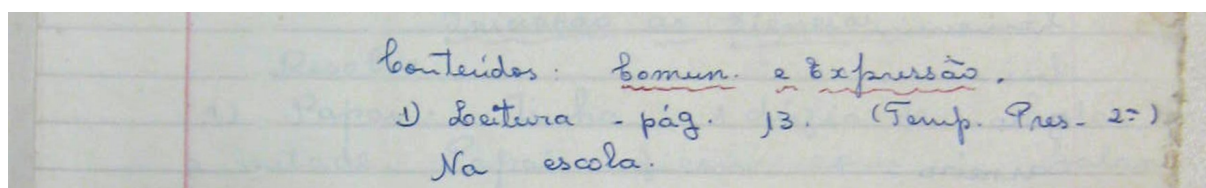 Conteúdos: Comun. e Expressão.
1) Leitura - pág. 13. (Temp. Pres. 2=)
Na escola.